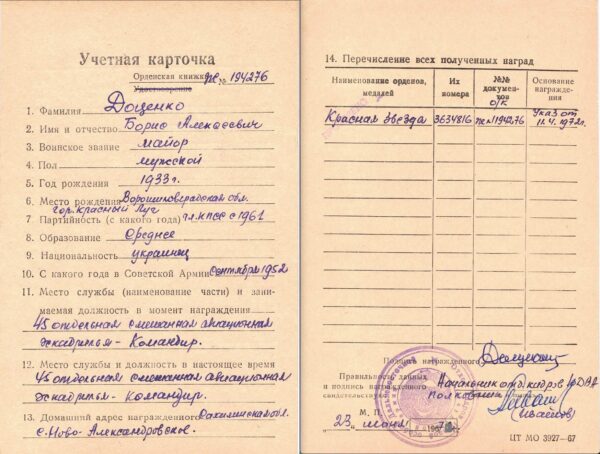 Учетная карточка
Орденская книжка № 194276
Удостоверение
1. Фамилия Доценко
2. Имя и отчество Борис Алексеевич
3. Воинское звание майор
4. Пол мужской
5. Год рождения 1933г.
6. Место рождения Ворошиловградская обл.
гор. Красный Луч
7. Партийность (с какого года) чл. КПСС с 1961
8. Образование Среднее
9. Национальность украинец
10. С какого года в Советской Армии сентября 1952
11. Место службы (наименование части) и зани-
маемая должность в момент награждения
45 отдельная смешанная авиационная
эскадрилья - Командир.
12. Место службы и должность в настоящее время
45 отдельная смешанная авиационная
эскадрилья - командир.
13. Домашний адрес награжденного Сахалинская обл.
с. Ново-Александровское.
14. Перечисление всех полученных наград
Наименование орденов, медалей
Их номера
№№ докумен-тов
о/к
Основание награжде-ния
Красная Звезда 3634816 № 194276 Указ от
11.4.1972г.
Подпись награжденного
Правильность данных
и подпись награжденного
свидетельствую
Начальник отд. кадров
полковник
М. П.
23 июня
ЦТ МО 3927—67